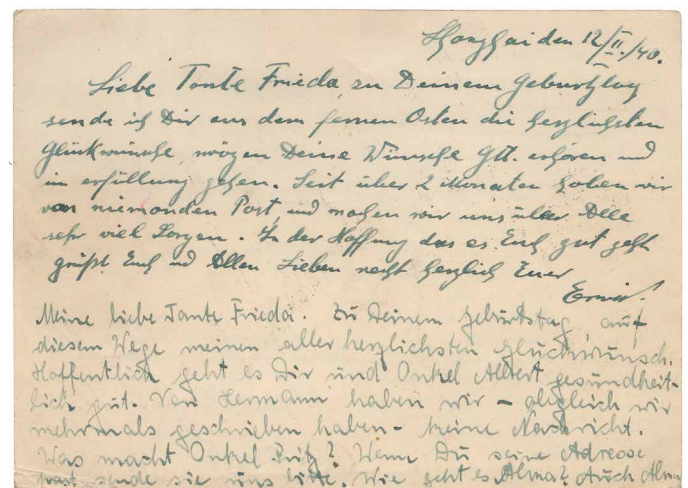 Shanghai den 12/II./40.
Liebe Tante Frieda, zu Deinem Geburtstag
sende ich Dir aus dem fernen Osten die herzlichsten
Glückwünsche, mögen Deine Wünsche Gtt. erhören und
in erfüllung gehen. Seit über 2 Monaten haben wir
von niemanden Post, und machen wir uns über Alle
sehr viel Sorgen. In der Hoffnung das es Euch gut geht
grüßt Euch und Allen Lieben recht herzlich Euer
Erwin.
Meine liebe Tante Frieda. Zu Deinem Geburtstag auf
diesem Wege meinen allerherzlichsten Glückwunsch.
Hoffentlich geht es Dir und Onkel Albert gesundheit-
lich gut. Von Hermann haben wir – obgleich wir
mehrmals geschrieben haben – keine Nachricht.
Was macht Onkel Fritz? Wenn Du seine Adresse
hast sende sie uns bitte. Wie geht es Alma? Auch